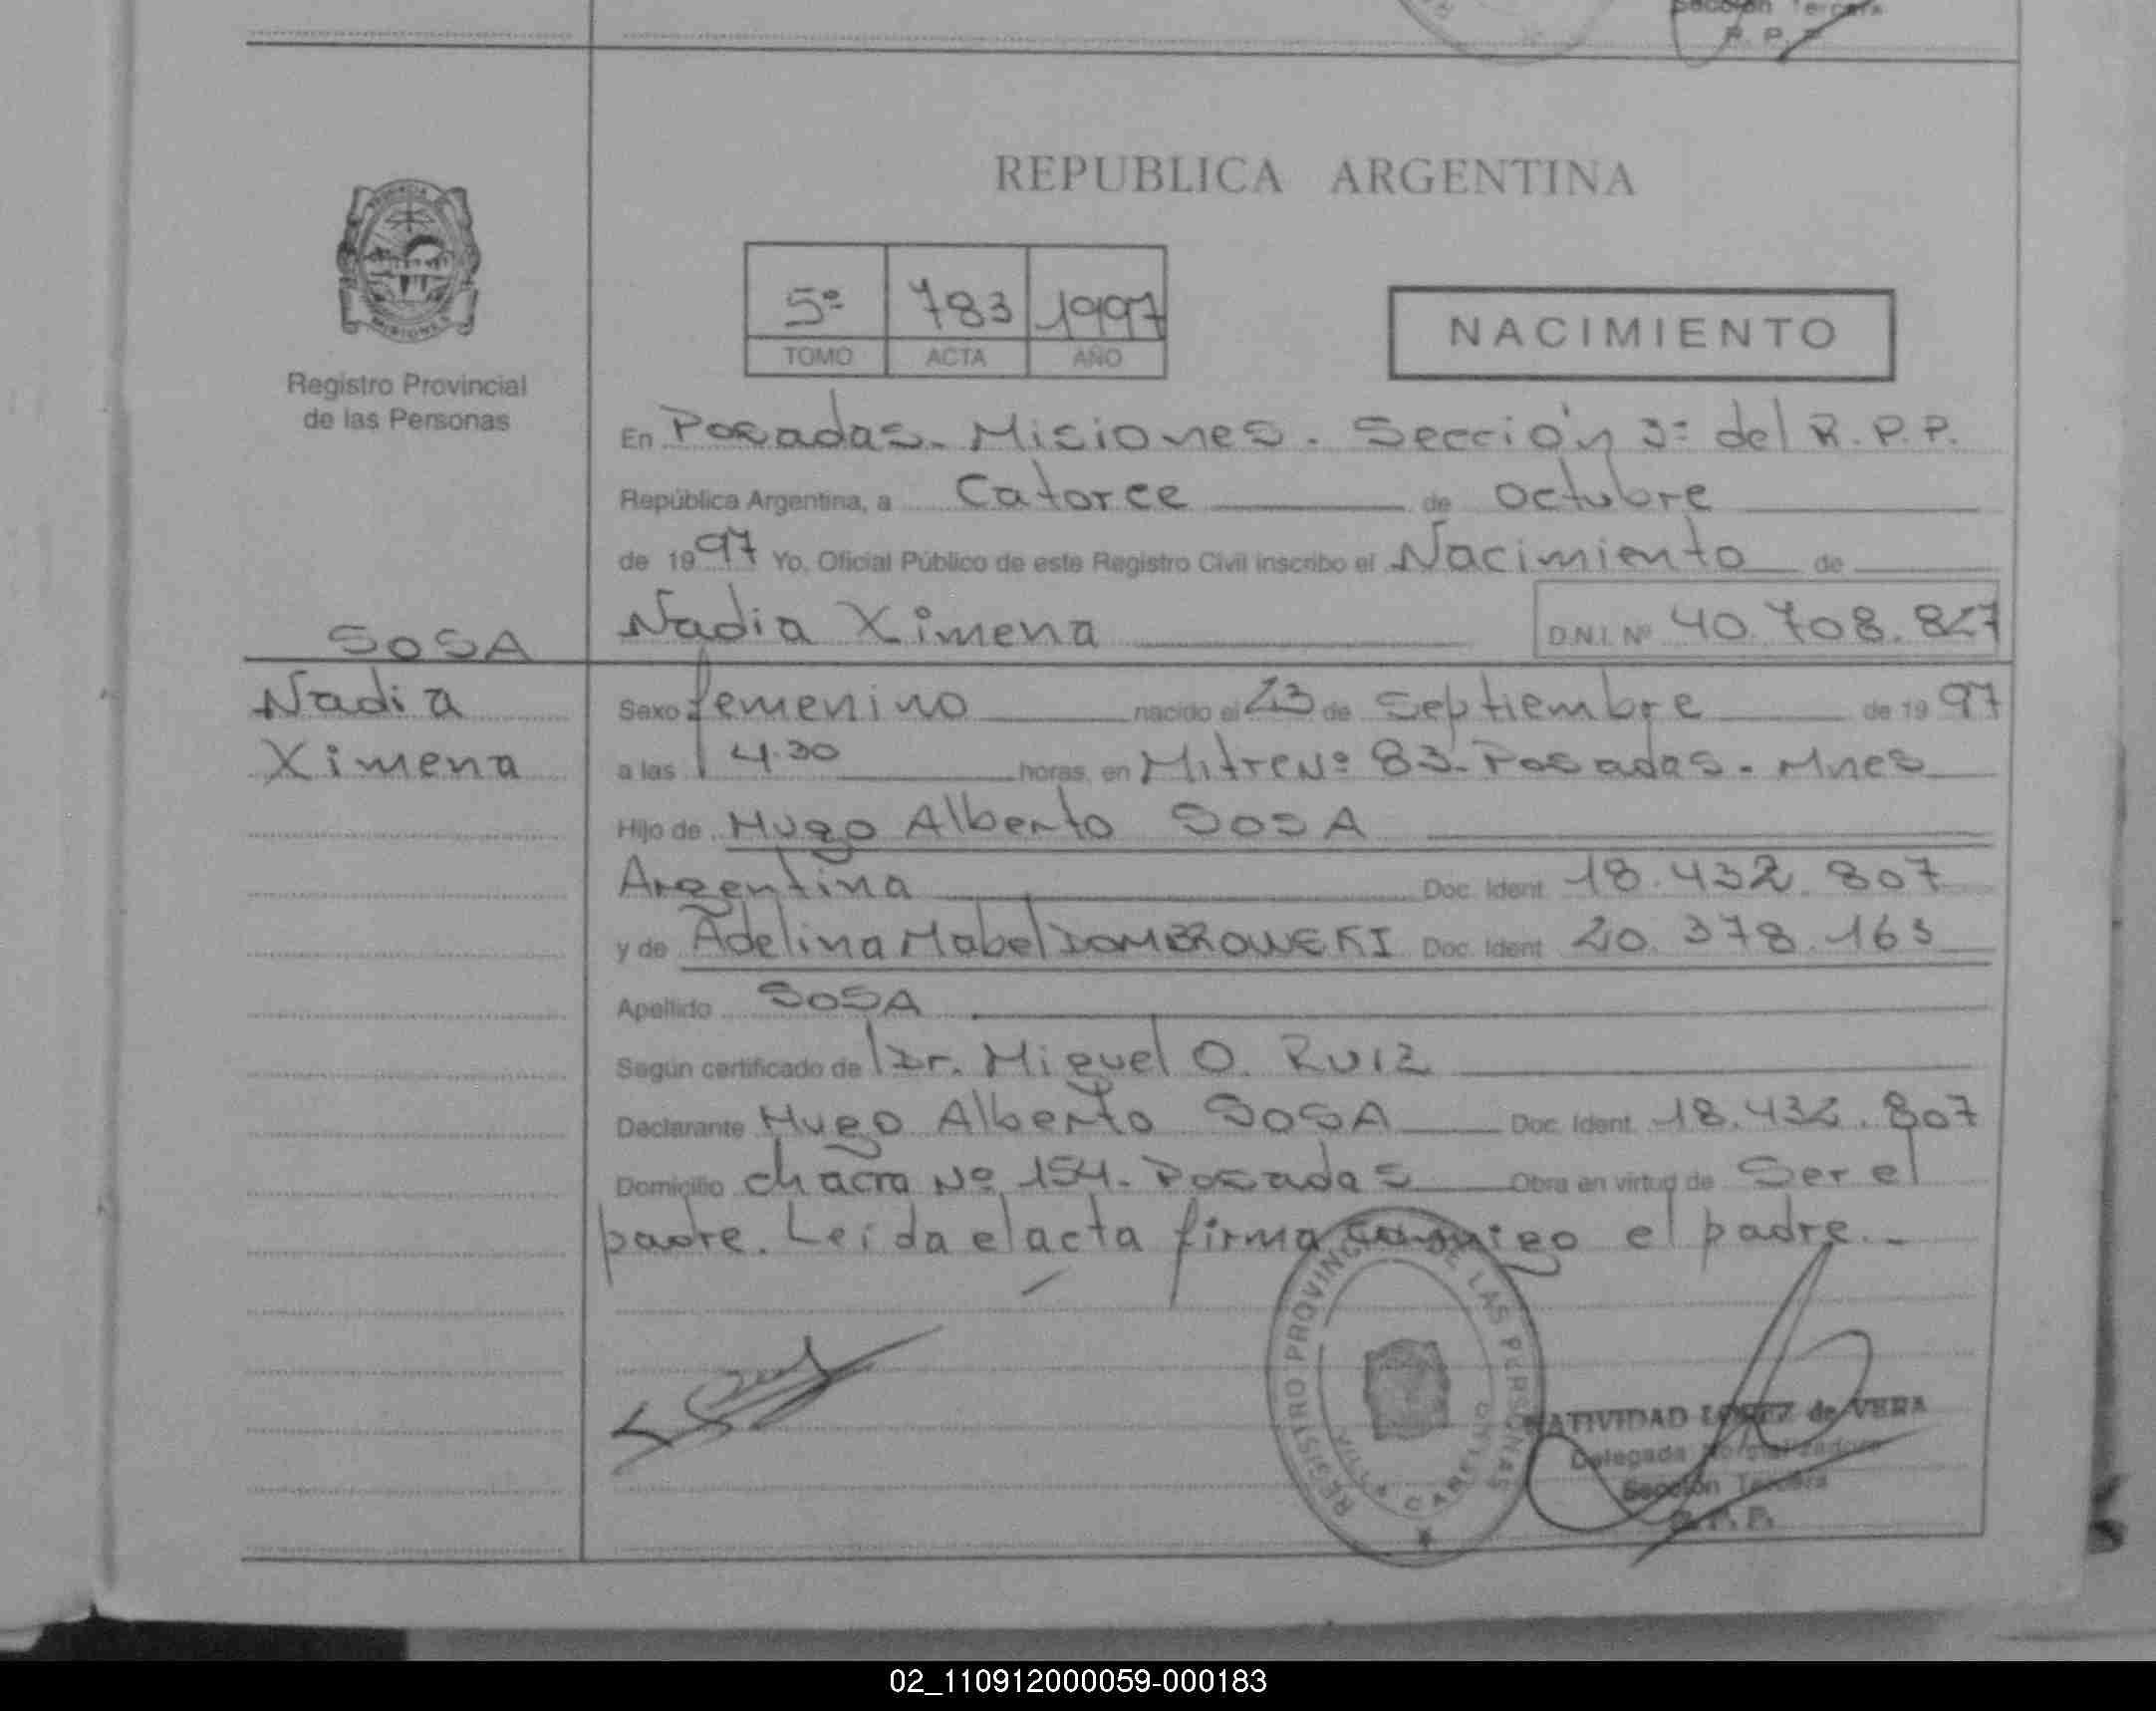 Sección Tercera
R. P. P.
REPUBLICA ARGENTINA
5º 783 1997
TOMO ACTA AÑO
NACIMIENTO
Registro Provincial
de las Personas
En Posadas - Misiones. Sección 3ª del R.P.P.
República Argentina, a Catorce de octubre
de 1997 Yo, Oficial Público de este Registro Civil inscribo el Nacimiento de
Nadia Ximena D.N.I. Nº 40.708.827
SOSA
Nadia
Ximena
Sexo femenino nacido el 23 de Septiembre de 1997
a las 4.30 horas, en Mitre Nº 83 - Posadas - Mnes
Hijo de Hugo Alberto SOSA
Argentina Doc. Ident. 18.432.807
y de Adelina Mabel DOMBROWSKI Doc. Ident. 20.378.163
Apellido SOSA
Según certificado de Dr. Miguel O. Ruiz
Declarante Hugo Alberto SOSA Doc. Ident. 18.432.807
Domicilio chacra Nº 154 - Posadas Obra en virtud de Ser el
padre. Leída el acta firma conmigo el padre.-
REGISTRO PROVINCIAL DE LAS PERSONAS
VILLA CABELLO
NATIVIDAD LOPEZ de VERA
Delegada Normalizadora
Sección Tercera
R.P.P.
02_110912000059-000183